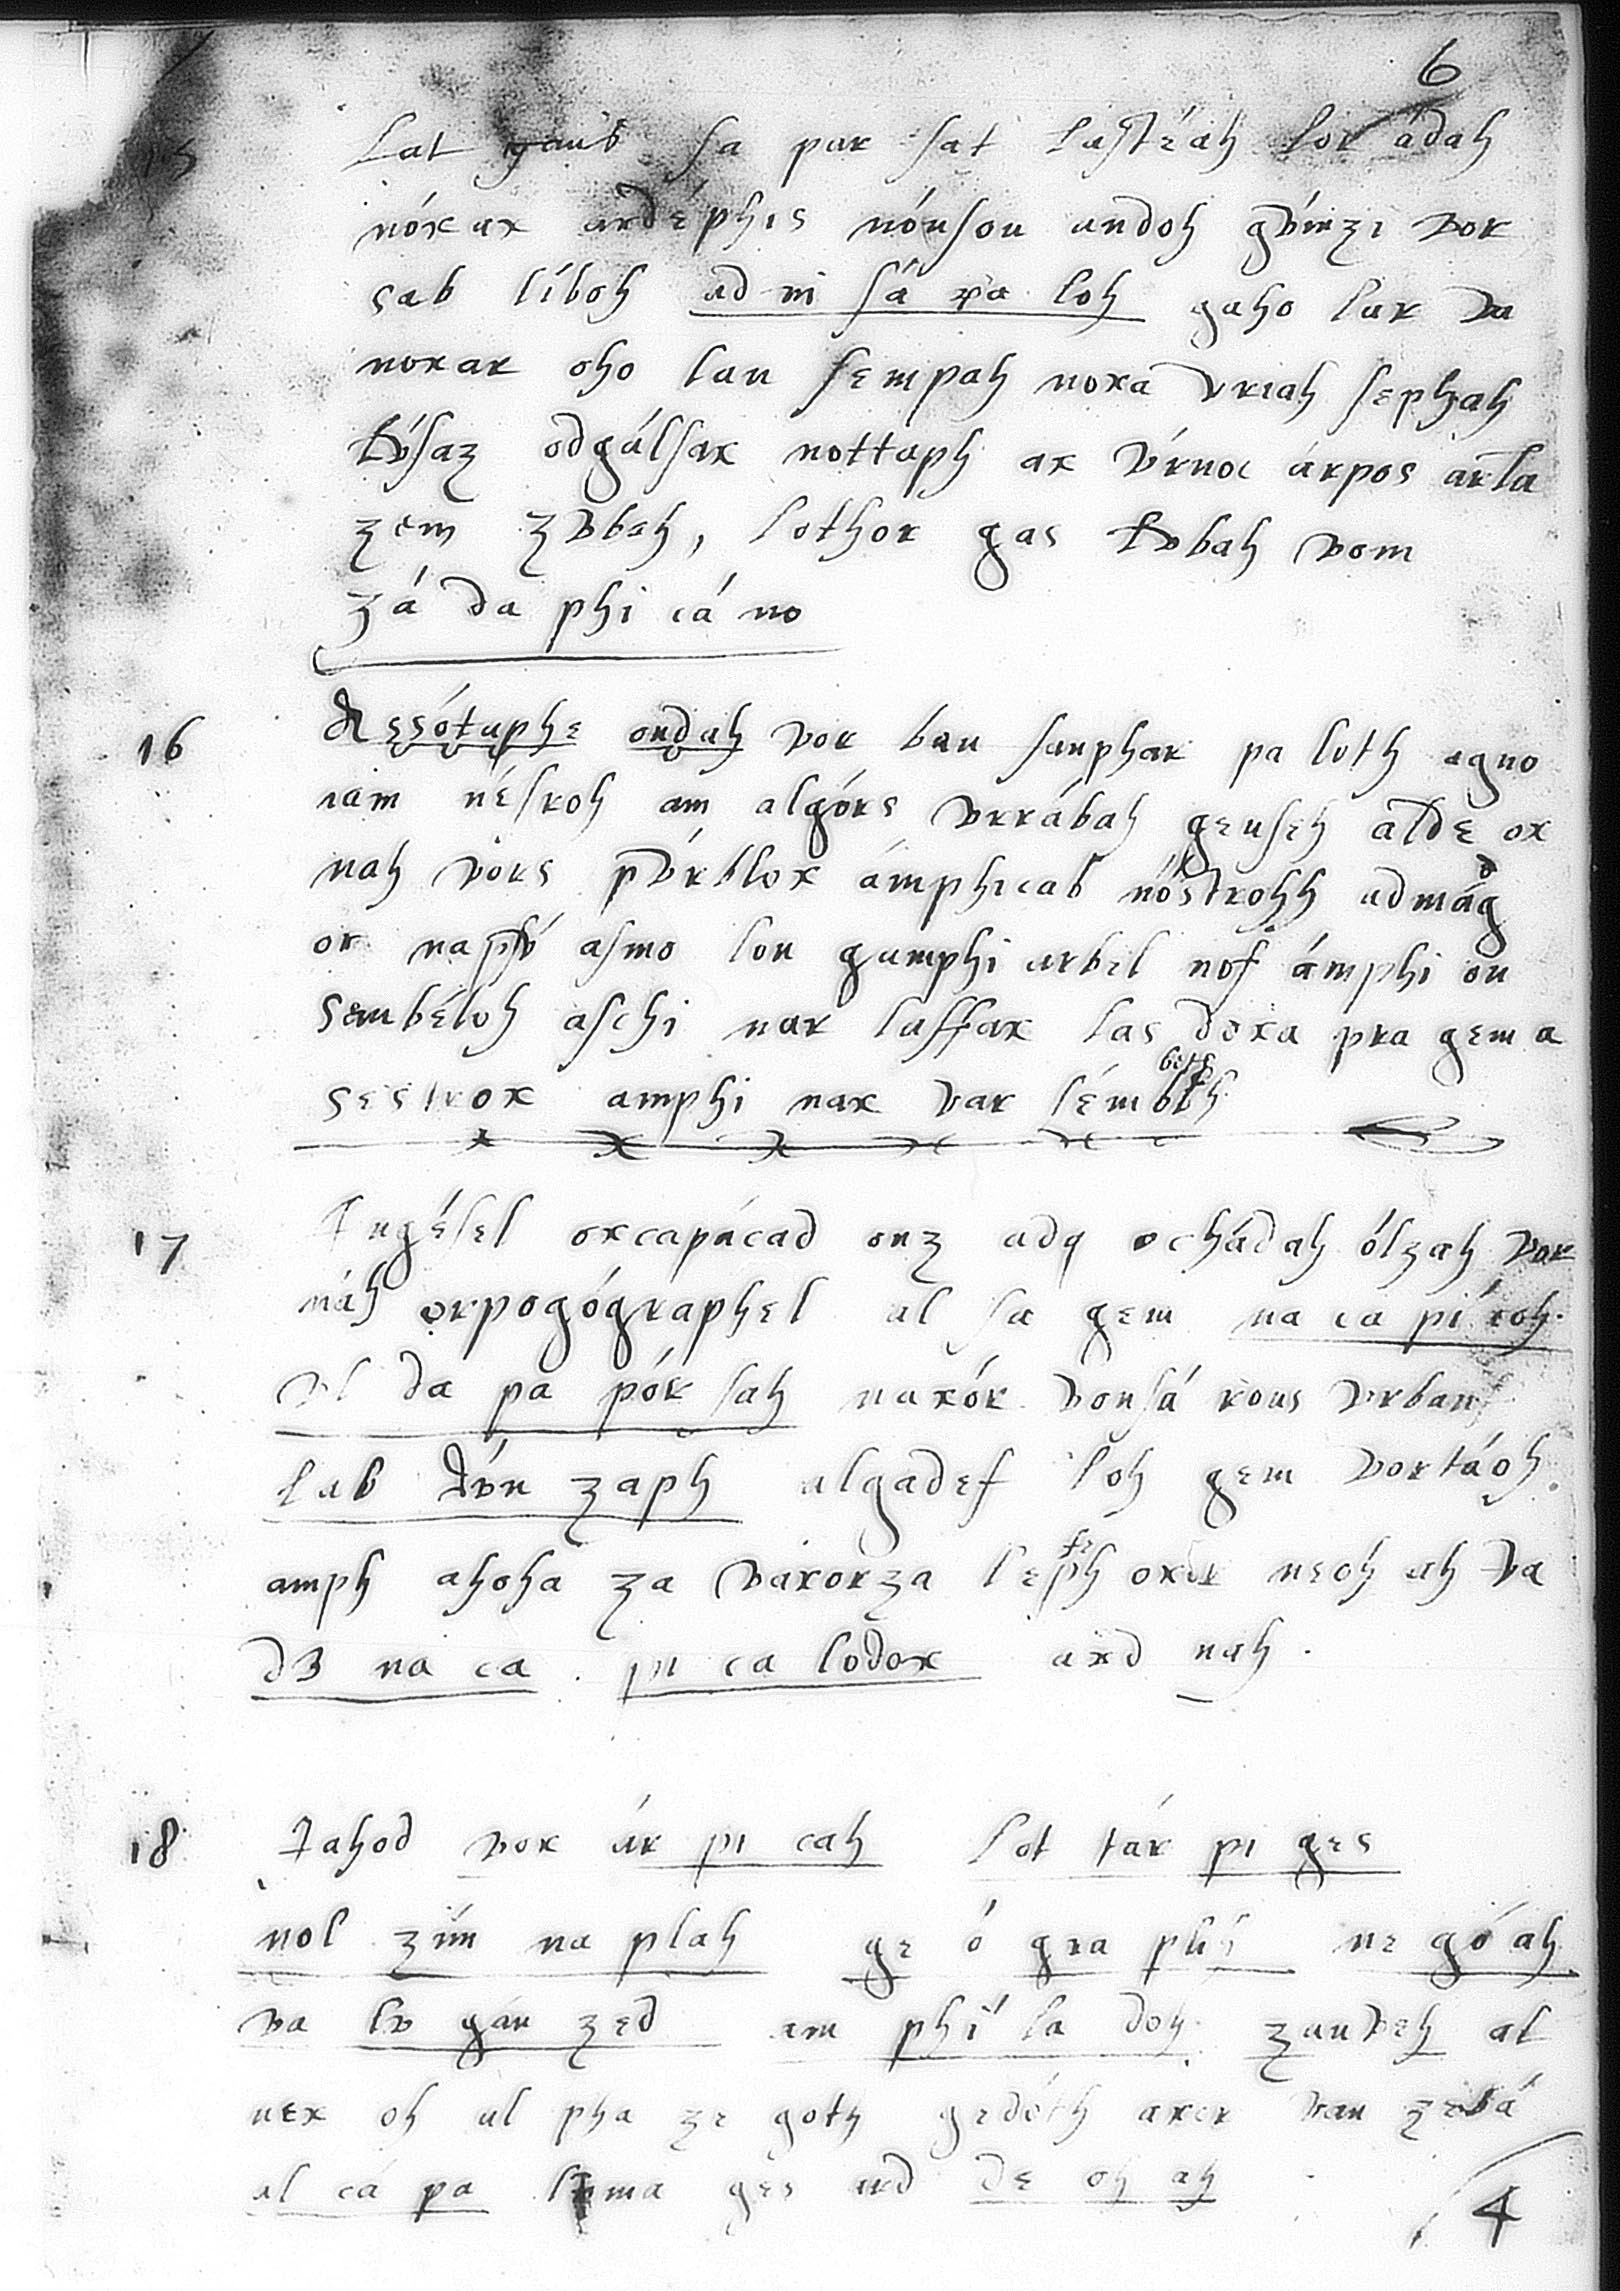 6
15 Lat gaub sa par sat lastéah lor ádah
nóxax ardéphis nónson andoh gvmzi vor
sab líboh ad ni sá pa loh gaho lar va
noxar oho lan sempah noxa vriah sephah
lvsaz odgálsax nottaph ax vrnoc árpos arta
zem zvbah, lothor gas lvbah vom
zá da phi cá no
16 Resótaphe ondah vor ban sanphar pa loth agno
iam nésroh am algórs vrrábah genseh alde ox
nah vors pvrblox ámphicab nóstrohh admág
or napsv asmo lon gamphi arbel nof ámphi on
sembéloh aschi nar laffax las doxa pra gem a
sestrox amphi nax var sémblh
17 Angésel oxcapácad onz adq ochádah ólzah vor
náh orpogógraphel al sa gem na ca pí roh.
vl da pa pór sah naxór vonsá rons vrban
lab dvn zaph algadef loh gem vortáoh.
amph ahoha za vaxorza leph oxor neoh ah va
d3 na ca . pi ca lodox axd nah .
18 Iahod vox ár pi cah lot tár pi ges
nol zim na plah ge ó gra phí ne gó ah
va lv gán zed am phí la doh zanveh al
nex oh al pha ze goth gedóth axor van zebá
al cá pa lvma ges ard de oh ah .
4